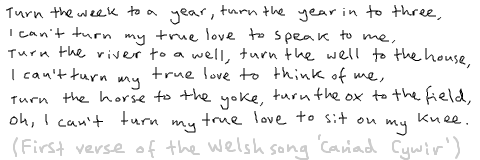 Turn the week to a year, turn the year in to three,
I can't turn my true love to speak to me,
Turn the river to a well, turn the well to the house,
I can't turn my true love to think of me,
Turn the horse to the yoke, turn the ox to the field,
Oh, I can't turn my true love to sit on my knee.
(First verse of the Welsh song 'Cariad Cywir')